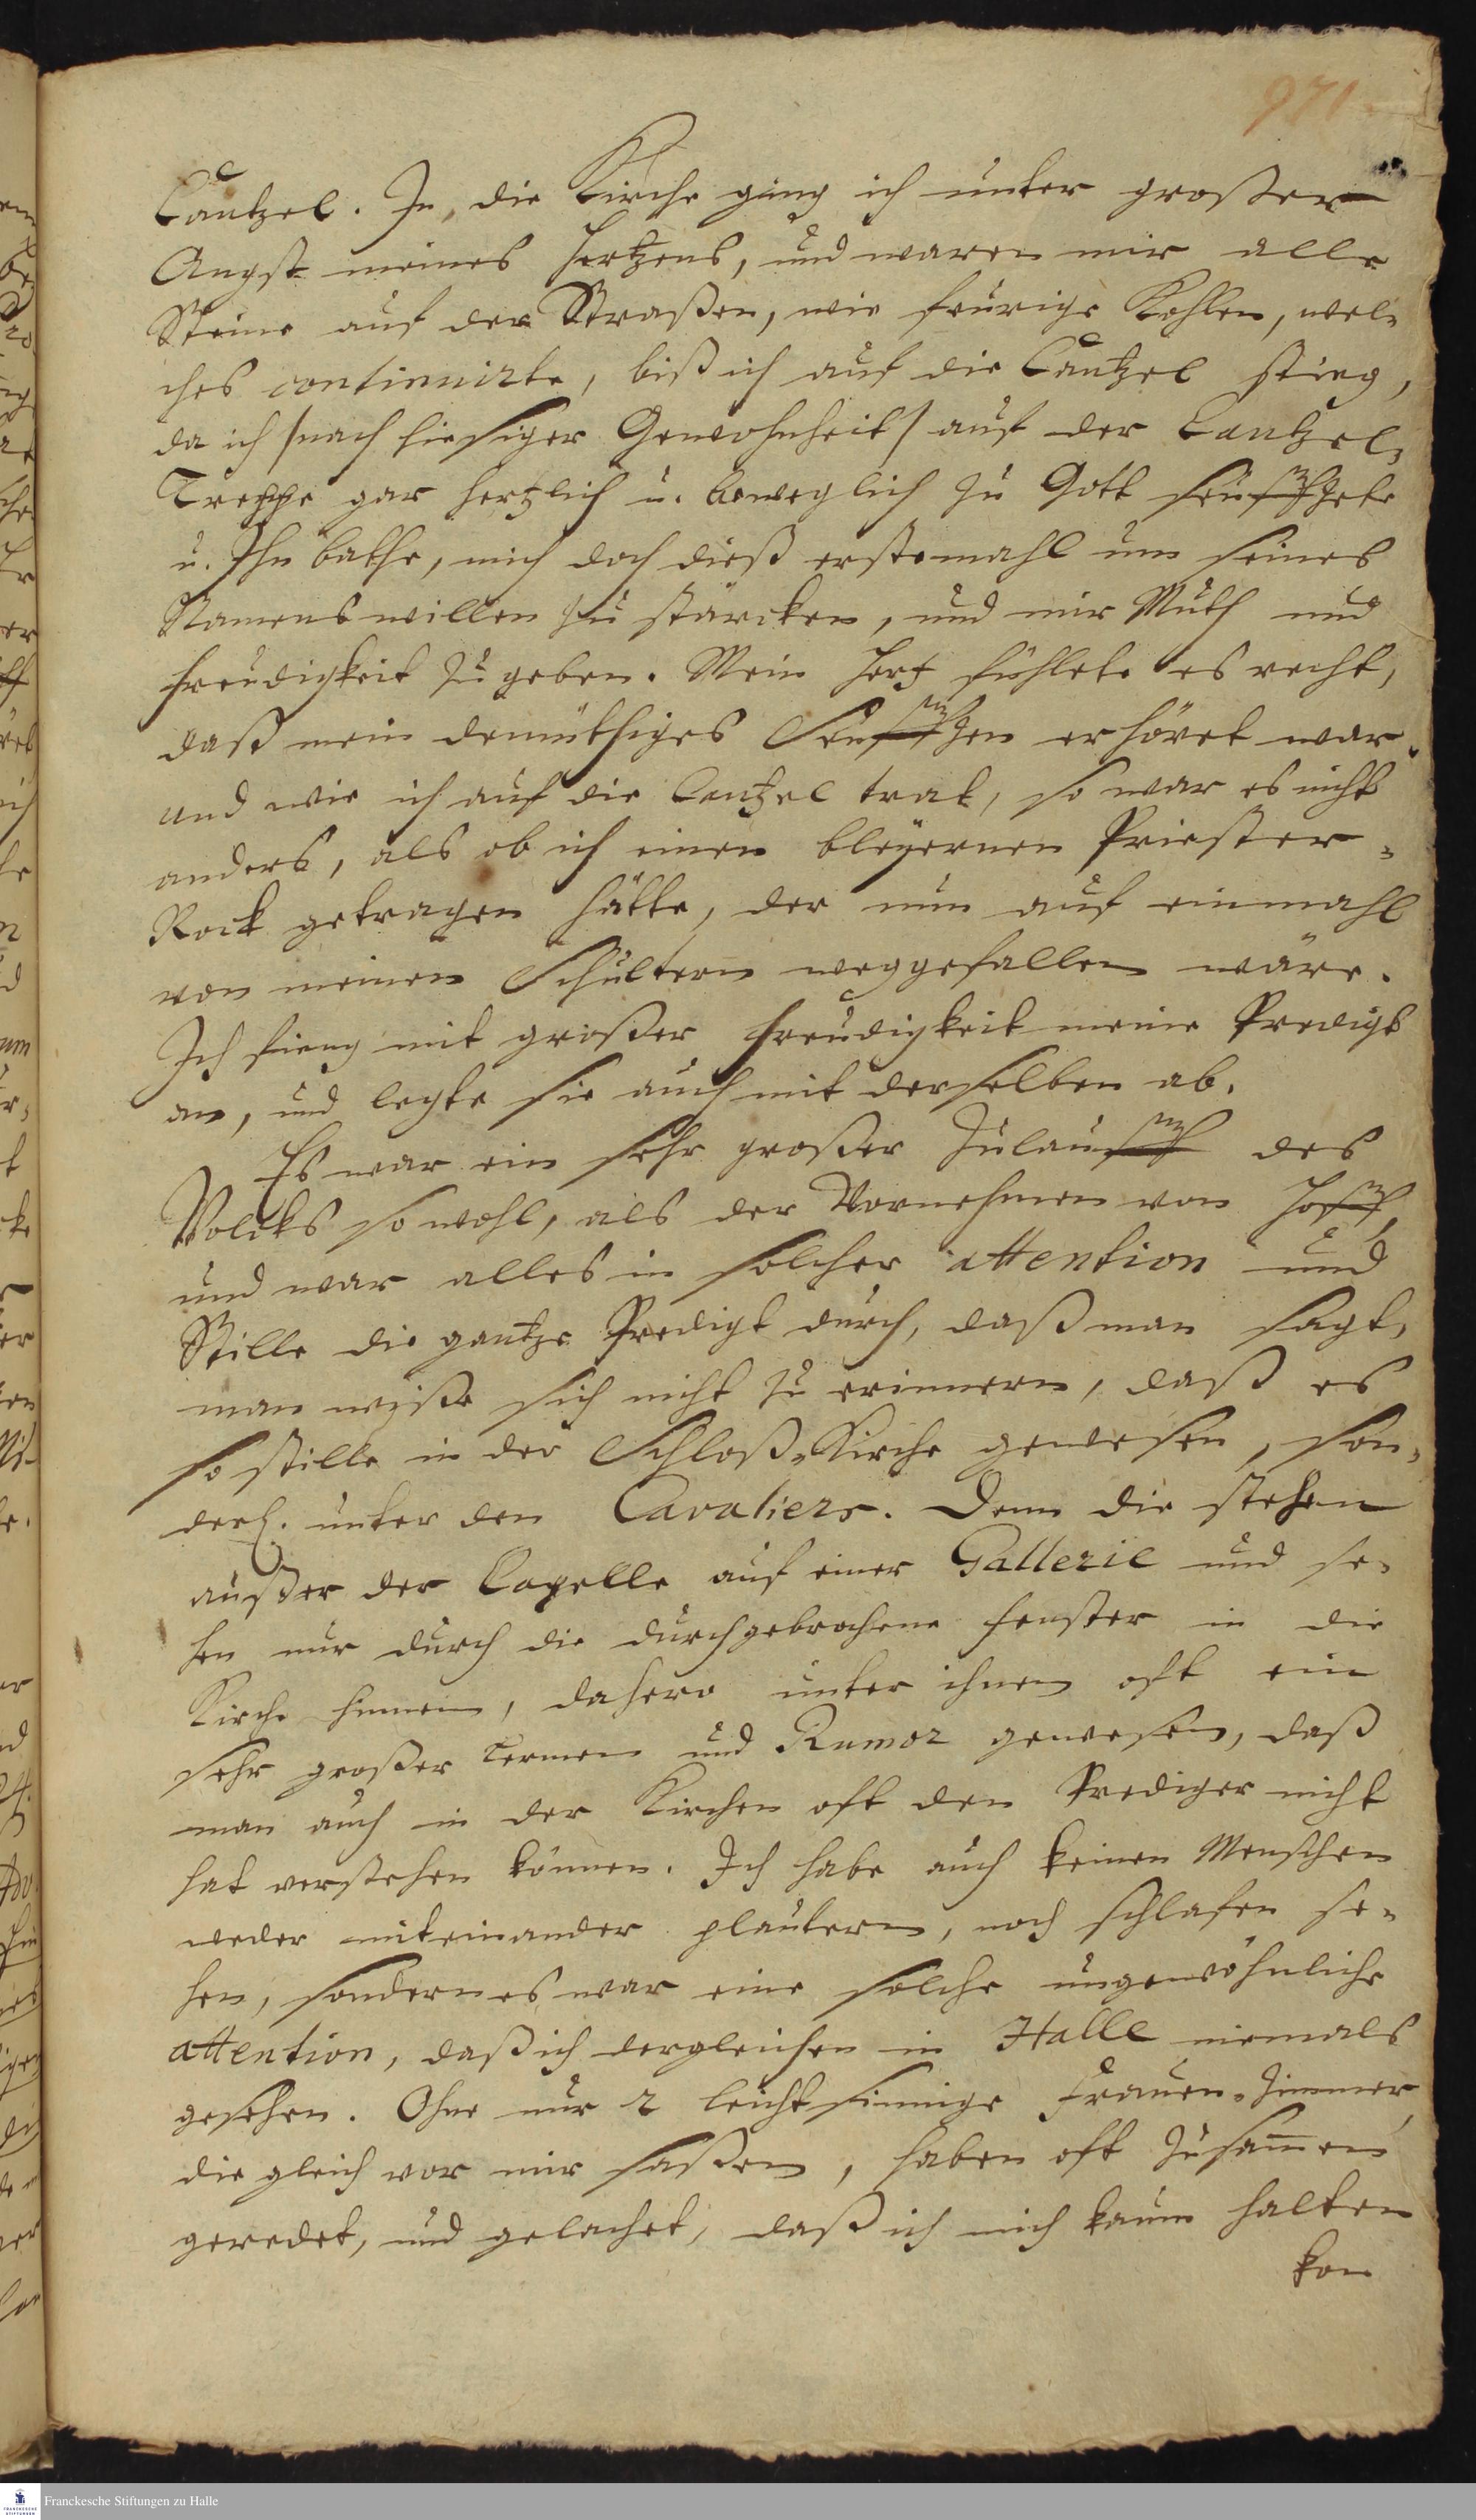 971
Cantzel. In die Kirche ging ich unter großer
Angst meines Hertzens, und waren mir alle
Steine auf der Straßen, wie feurige Kohlen, wel-
ches continuirte, biß ich auf die Cantzel stieg,
da ich /nach hiesiger Gewohnheit/ auf der Cantzel-
Treppe gar hertzlich u. beweglich zu Gott seuffzete
u. Ihn bathe, mich doch dieß erstemahl um seines
Namens willen zu stärcken, und mir Muth und
Freudigkeit zu geben. Mein Hertz fühlete es recht,
daß mein demüthiges Seuffzen erhöret war.
und wie ich auf die Cantzel trat, so war es nicht
anders, als ob ich einen bleyernen Priester-
Rock getragen hätte, der nun auf einmahl
von meinen Schultern weggefallen wäre.
Ich fieng mit großer Freudigkeit meine Predigt
an, und legte sie auch mit derselben ab.
Es war ein sehr großer Zulauff des
Volcks so wohl, als der Vornehmen von Hoff,
und war alles in solcher attention und
Stille die gantze Predigt durch, daß man sagt,
man wiße sich nicht zu erinnern, daß es
so stille in der Schloß-Kirche gewesen, son-
derl. unter den Cavaliers. Denn die stehen
außer der Capelle auf einer Gallerie und se-
hen nur durch die durchgebrochene Fenster in die
Kirche hinnein, dahero unter ihnen oft ein
sehr großer Lermen und Rumor gewesen, daß
man auch in der Kirchen oft den Prediger nicht
hat verstehen können. Ich habe auch keinen Menschen
weder miteinander plaudern, noch schlafen se-
hen, sondern es war eine solche ungewöhnliche
attention, daß ich dergleichen in Halle niemals
gesehen. Ohne nur 2 leichtsinnige Frauen-Zimmer,
die gleich vor mir saßen, haben oft zusam̅en
geredet, und gelachet, daß ich mich kaum halten
kon
Franckesche Stiftungen zu Halle